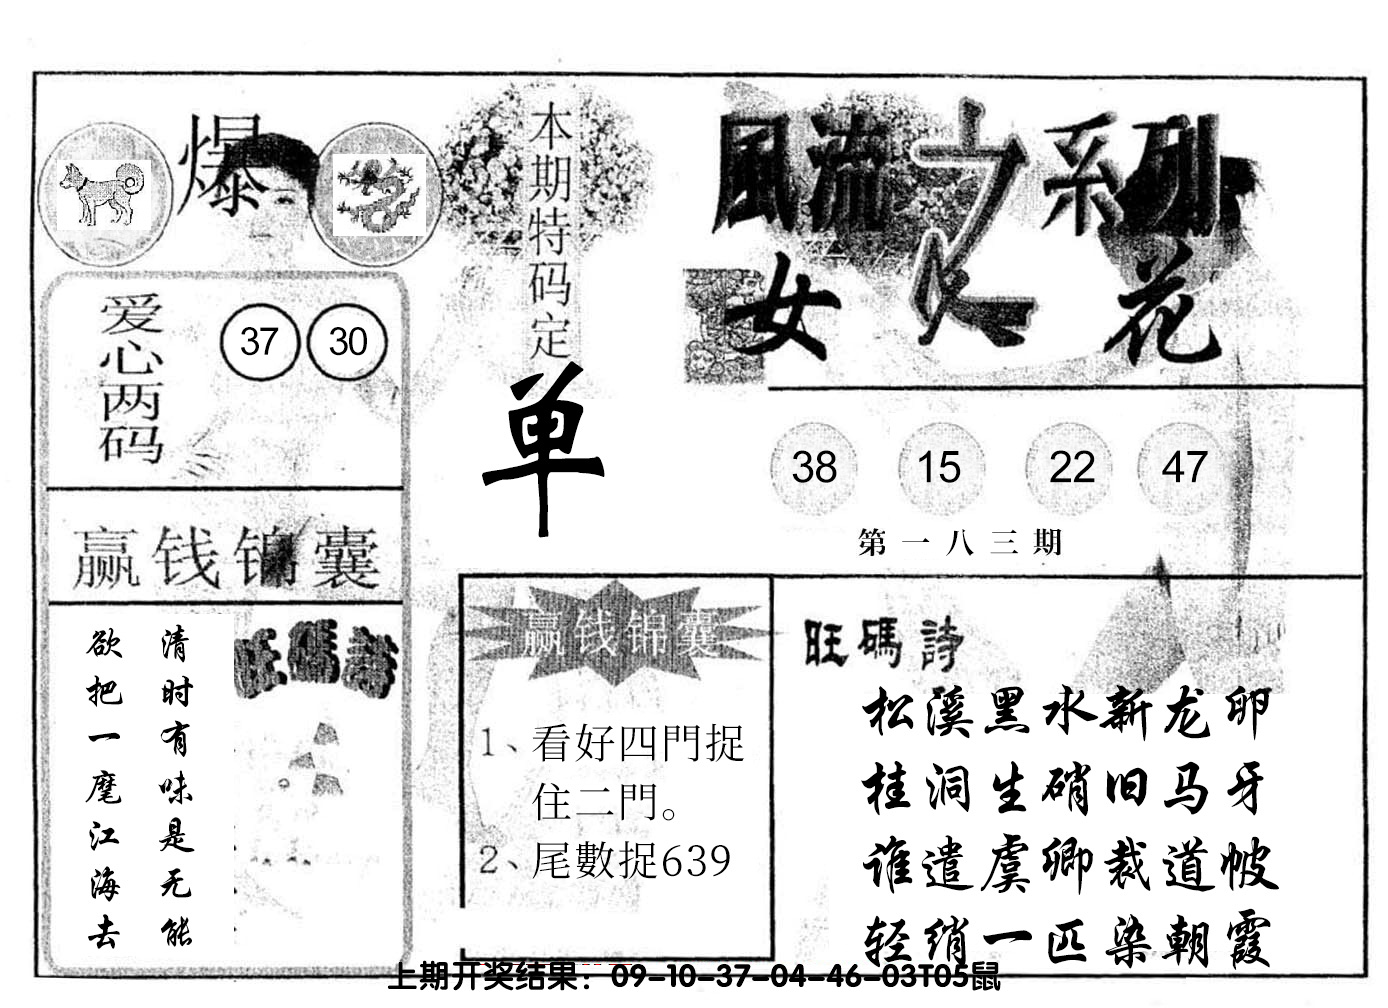 爆
本期特码定
单
風流之系列
女人花
爱心两码
37 30
38 15 22 47
第一八三期
赢钱锦囊
清时有味是无能
欲把一麾江海去
旺碼詩
赢钱锦囊
1、看好四門捉
住二門。
2、尾數捉639
旺碼詩
松溪黑水新龙卵
桂洞生硝旧马牙
谁遣虞卿裁道帔
轻绡一匹染朝霞
上期开奖结果：09-10-37-04-46-03T05鼠